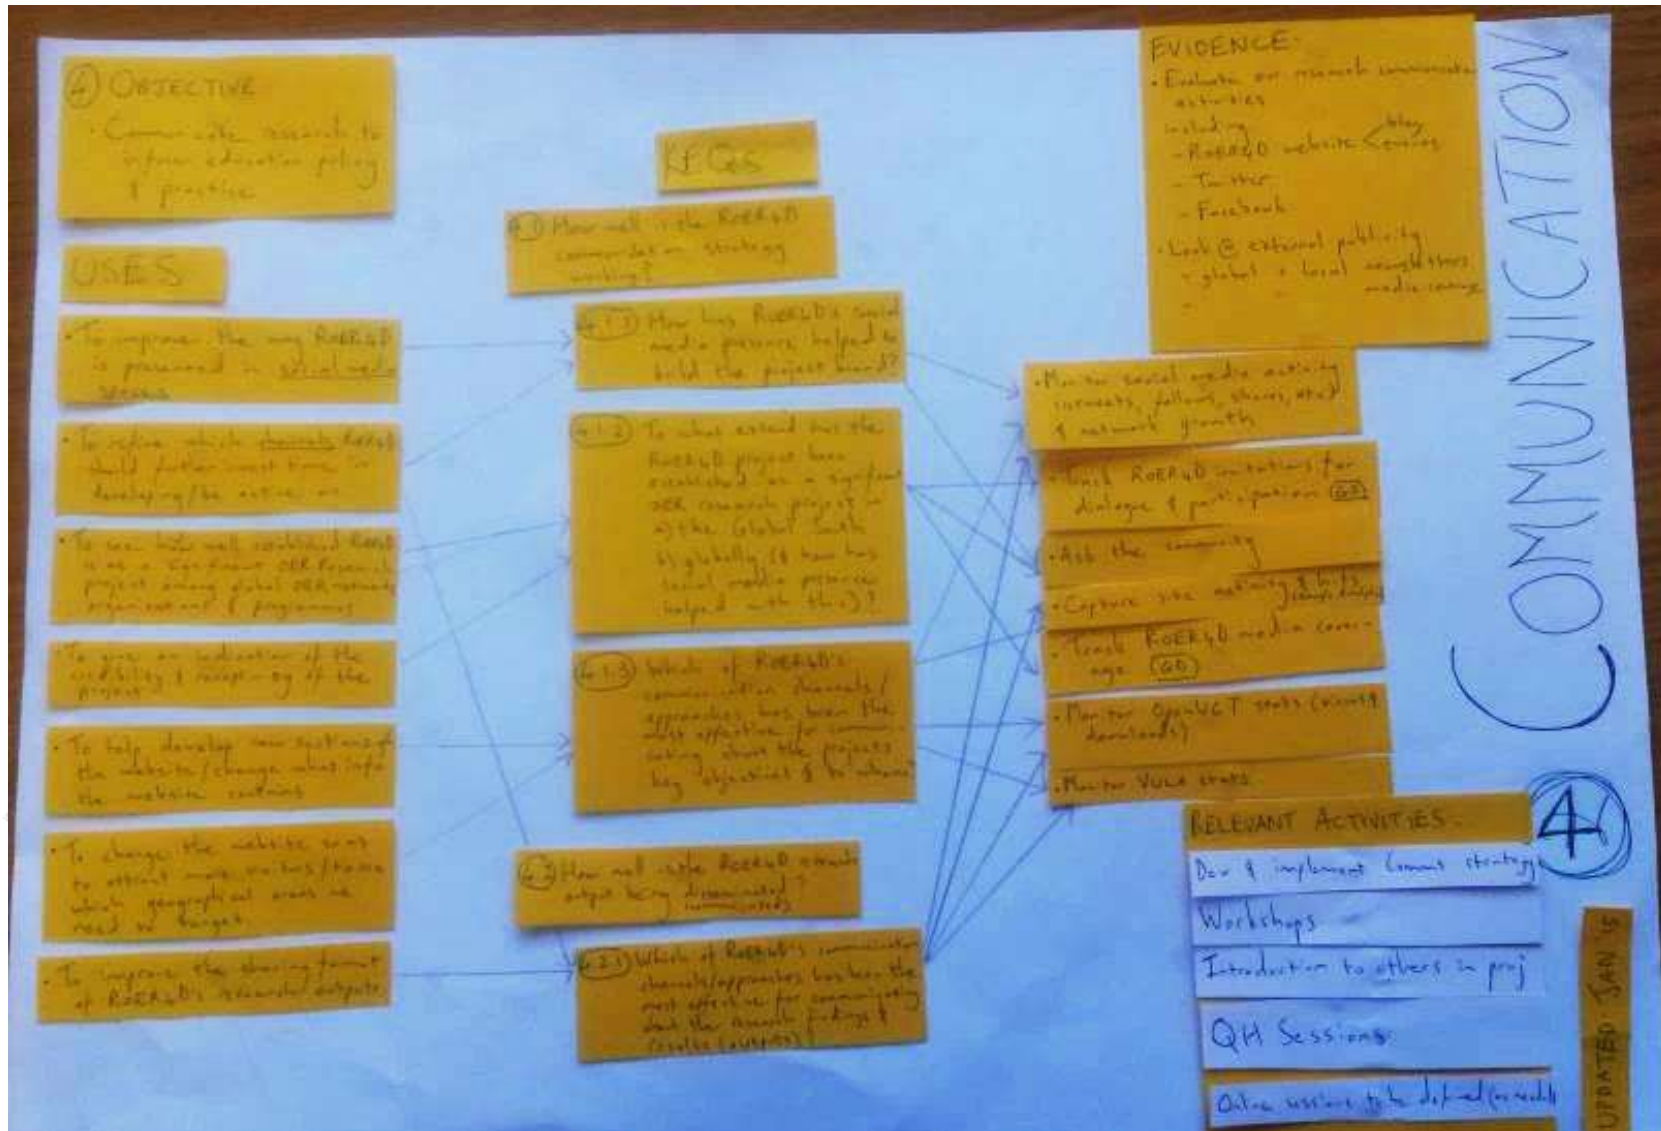 ④ OBJECTIVE
• Communicate research to
inform education policy
& practice
USES
• To improve the way ROER4D
is presented in social media
spaces
• To refine which channels ROER4D
should further invest time in
developing/be active on
• To see how well established ROER4D
is as a OER Research
project among global OER networks
organisations & programmes
• To give an indication of the
credibility & of the
project
• To help develop new sections of
the website/change what info
the website contains
• To change the website so as
to attract more visitors/to see
which geographical areas we
need to target.
• To improve the sharing format
of ROER4D's research outputs.
KEQs
4.1 How well is the ROER4D
communication strategy
working?
4.1.1 How has ROER4D's social
media presence helped to
build the project brand?
4.1.2 To what extend has the
ROER4D project been
established as a significant
OER research project in
a) the Global South
b) globally (& how has
social media presence
helped with this)?
4.1.3 Which of ROER4D's
communication channels/
approaches has been the
most effective for communi-
cating about the projects
key objectives & to whom?
4.2 How well is the ROER4D research
output being disseminated/
communicated?
4.2.1 Which of ROER4D's communication
channels/approaches has been the
most effective for communicating
about the research findings &
results (outputs)?
EVIDENCE:
• Evaluate our research communication
activities
including
- ROER4D website < blog
- Twitter
- Facebook
• Look @ external publicity
- global + local newsletters
media coverage
-
• Monitor social media activity
(comments, follows, shares, etc)
& network growth
• Track ROER4D invitations for
dialogue & participation (GD)
• Ask the community
• Capture site activity & hits
• Track ROER4D media cover-
age (GD)
• Monitor OpenUCT stats (views &
downloads)
• Monitor VULA stats
RELEVANT ACTIVITIES.
Dev & implement Comms strategy
Workshops
Introduction to others in proj
QH Sessions
Online sessions to be defined (as needed)
COMMUNICATION
④
UPDATED: JAN '15